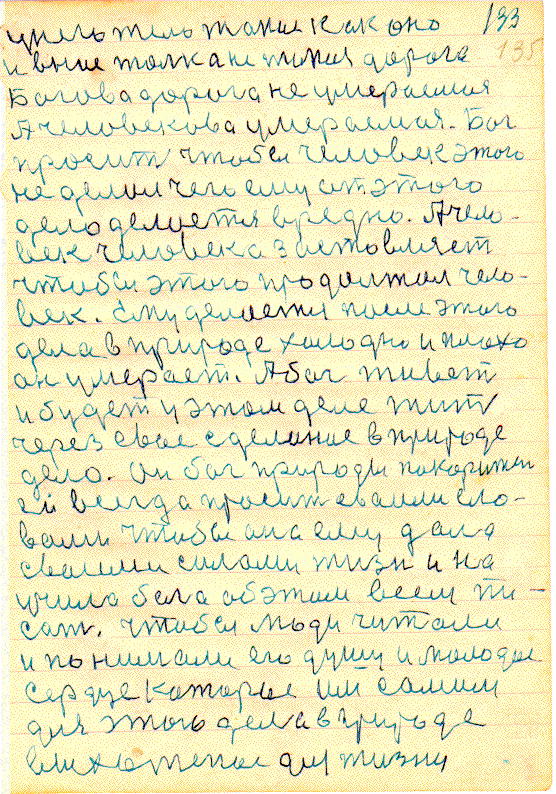 133
135
как оно
и вние толка не
Богова дорога не умераемия
А человекова умераемая. Бог
просит чтобы человек этого
не делал чего ему от этого
дело делается вредно. А чело-
век человека заставляет
чтобы этого продолжал чело-
век. Ему делается после этого
дела в природе холодно и плохо
он умерает. А бог живет
и будет у этом деле жить
через свое сделаное в природе
дело. Он бог природы
ей всегда просит своими сло-
вами чтобы она ему дала
своими силами жизни и на
учила бога об этом всем пи-
сать. Чтобы люди читали
и понимали его душу и молодое
сердце которое им самим
для этого дела в природе
для жизни